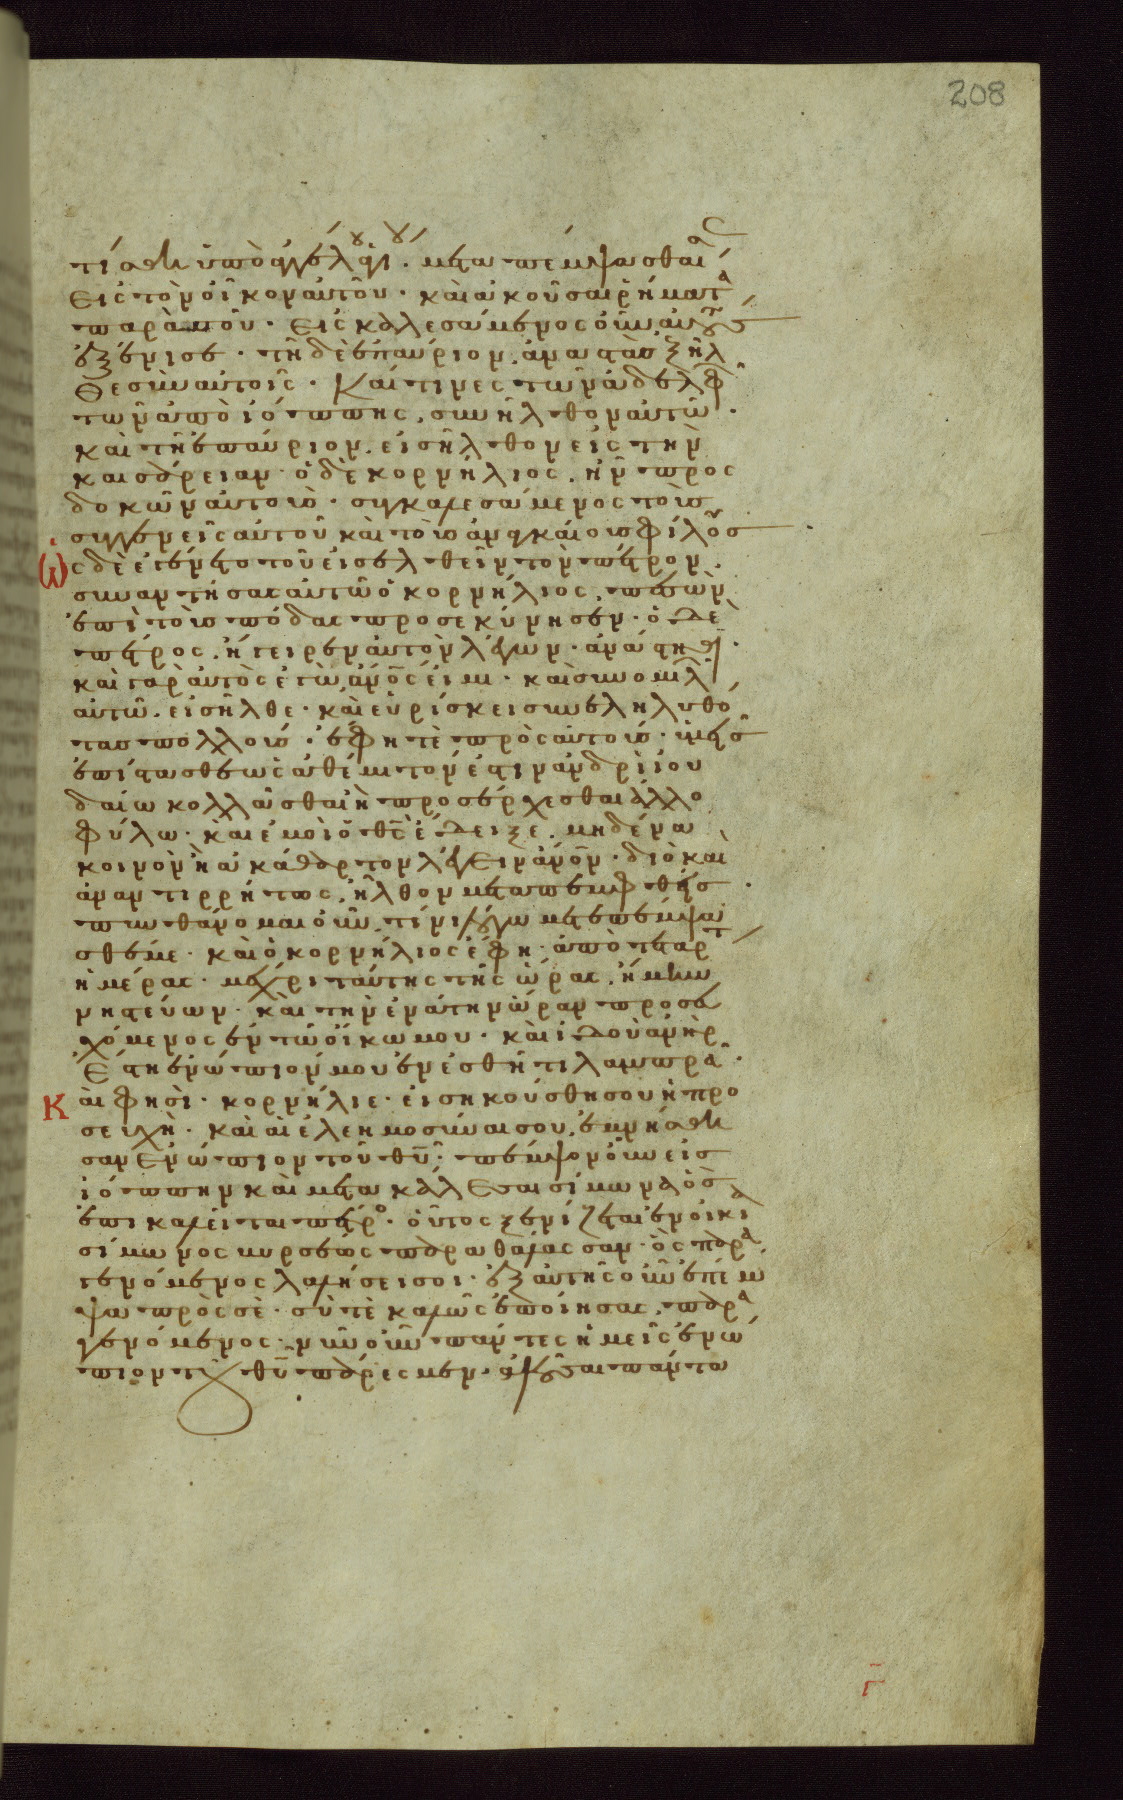 208
τίσθη ὑπὸ ἀγγέλου ἁγίου. μεταπέμψασθαί σε
εἰς τὸν οἶκον αὐτοῦ. καὶ ἀκοῦσαι ῥήματα
παρὰ σοῦ. εἰσκαλεσάμενος οὖν αὐτοὺς
ἐξένισε. τῆ δὲ ἐπαύριον, ἀναστὰς ἐξῆλ
θε σὺν αὐτοῖς. Καί τινες τῶν ἀδελφῶν
τῶν ἀπὸ ἰόππης, συνῆλθον αὐτῶ.
καὶ τῆ ἐπαύριον, εἰσῆλθον εἰς τὴν
καισάρειαν. ὁ δὲ κορνήλιος, ἦν προς
δοκῶν αὐτοὺς. συγκαλεσάμενος τοὺς
συγγενεῖς αὐτοῦ καὶ τοὺς ἀναγκαίους φίλους
ὡς δὲ ἐγένετο τοῦ εἰσελθεῖν τὸν πέτρον.
συναντήσας αὐτῶ ὁ κορνήλιος, πεσὼν
ἐπὶ τοὺς πόδας προσεκύνησεν. ὁ δὲ
πέτρος, ἤγειρεν αὐτὸν λέγων. ἀνάστηθι.
καὶ γὰρ αὐτὸς ἐγὼ ἄνος εἰμι. καὶ συνομιλῶν
αὐτῶ. εἰσῆλθε. καὶ εὑρίσκει συνεληλυθό
τας πολλούς. ἔφη τὲ πρὸς αὐτούς. ὑμεῖς
ἐπίστασθε ὡς ἀθέμιτόν ἐστιν ἀνδρὶ ἰου
δαίω κολλᾶσθαι ἢ προσέρχεσθαι ἀλλο
φύλω. καὶ ἐμοὶ ὁ θς ἔδειξε, μηδένα
κοινὸν ἢ ἀκάθαρτον λέγειν ἄνον. διὸ καὶ
ἀναντιρρήτως, ἦλθον μεταπεμφθείς.
πυνθάνομαι οὖν, τίνι λόγω μετεπέμψα
σθέ με. καὶ ὁ κορνήλιος ἔφη. ἀπὸ τετάρτης
ἡμέρας. μέχρι ταύτης τῆς ὥρας, ἤμην
νηστεύων. καὶ τὴν ἐνάτην ὥραν προσευ
χόμενος ἐν τῶ οἴκω μου. καὶ ἰδοὺ ἀνὴρ
ἔστη ἐνώπιόν μου ἐν ἐσθῆτι λαμπρᾶ.
Καὶ φησὶ. κορνήλιε. εἰσηκούσθη σου ἡ προ
σευχὴ. καὶ αἱ ἐλεημοσύναι σου, ἐμνήσθη
σαν ἐνώπιον τοῦ θυ. πέμψον οὖν εἰς
ἰόππην καὶ μετακάλεσαι σίμωνα ὃς
ἐπικαλεῖται πέτρος. οὗτος ξενίζεται ἐν οἰκία
σίμωνος βυρσέως παρὰ θάλασσαν. ὃς παρα
γενόμενος λαλήσει σοι. ἐξ αὐτῆς οὖν ἔπεμ
ψα πρὸς σὲ. σύ τὲ καλῶς ἐποίησας, παρα
γενόμενος. νῦν οὖν πάντες ἡμεῖς ἐνώ
πιον τοῦ θυ πάρεσμεν. ἀκοῦσαι πάντα
γ